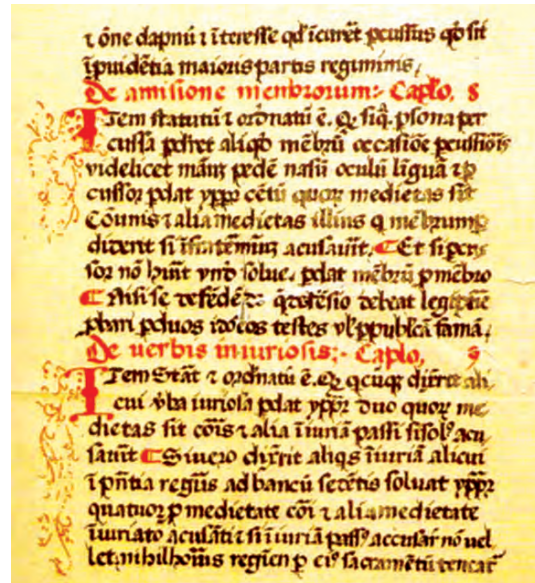 ⁊ őne dapnũ ⁊ ĩteresse qđ ĩcurẽt pcussus qđ sit
ĩpuidẽtia maioris partis regiminis.
De amisione menbrorum:- Caplo. 8
Item statutũ ⁊ ordnatũ ẽ. Q siq̃ psona per
cussa pdret aliqđ mẽbrũ occasiõe pcussiõis
videlicet manũ pedẽ nasũ oculũ lĩguã ⁊ p
cussor pdat yppa cẽtũ quoꝝ medietas sit
Cõunis ⁊ alia medietas illius q mẽbrum p
diderit si acusauĩt. Et si pcus
sor nõ hũit vnđ solue. pdat mẽbrũ p mẽbro
Nisi se defẽdẽt. q defẽsio debeat legitiẽ
pbari p duos idõcos testes vl ppublicã famã.
De uerbis iniuriosis:- Caplo. 9
Item Stãt ⁊ ordnatũ ẽ. Q qcũqꝫ dixerit ali
cui vba iuriosa pdat yppa duo quoꝝ me
dietas sit cõis ⁊ alia ĩiuriã passi si sol acu
sauĩt Si uero dixerit aliqs ĩiuriã alicui
ĩ pñtia regĩis ad bancũ sedẽtis soluat yppa
quatuor p medietate cõi ⁊ alia medietate
ĩiuriato acusãti ⁊ si ĩiuriã pass accusar nõ uel
let. nihilhomĩs regĩen p ei sacramẽtũ teneat